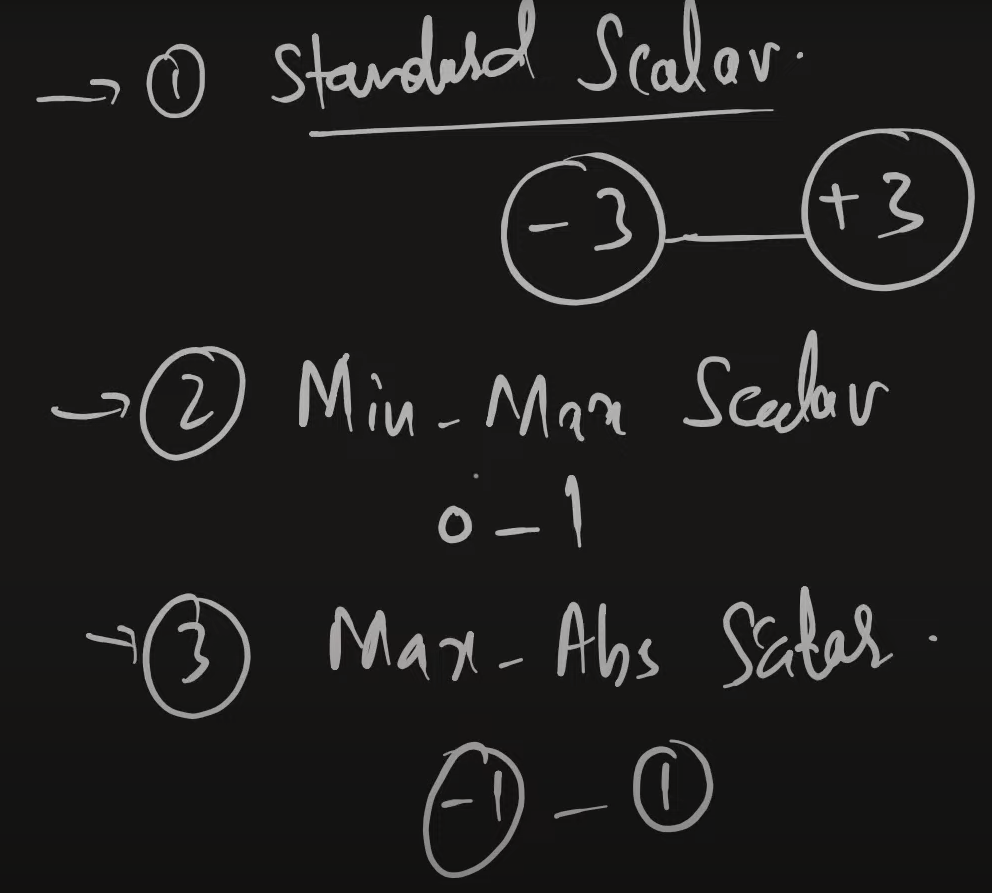 → ① Standard Scalar.
-3 — +3
→ ② Min-Max Scalar
0-1
→ ③ Max-Abs Scalar.
-1 - 1